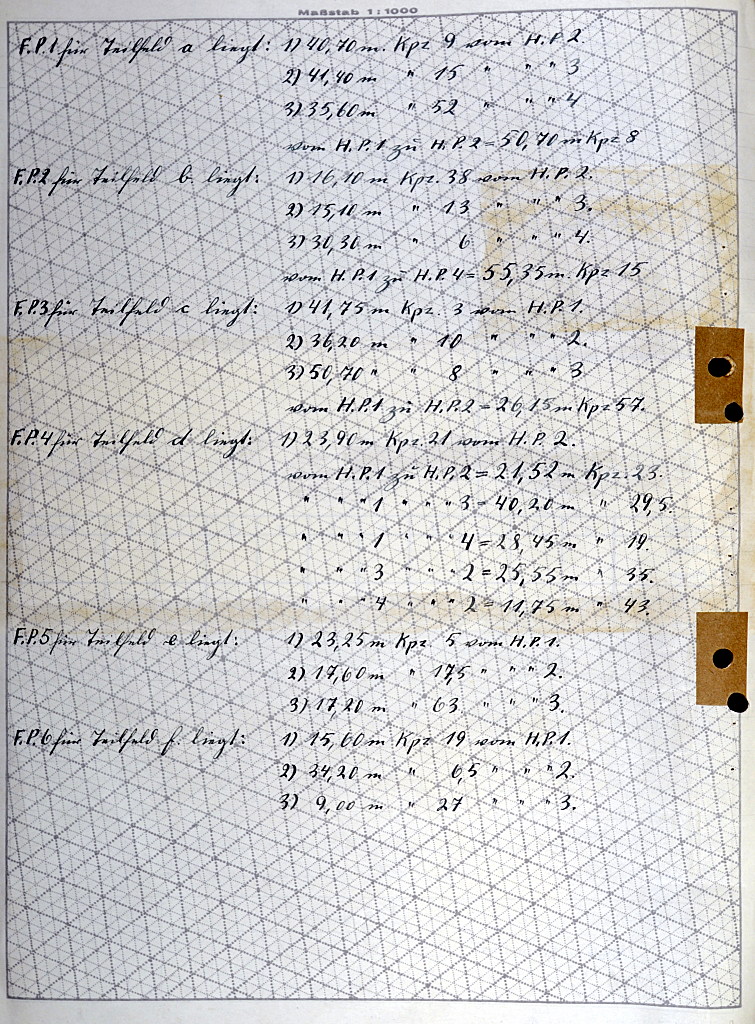 Maßstab 1:1000
F.P.1 für Teilfeld a liegt: 1) 40,70 m. Kpz 9 vom H.P. 2.
2) 41,40 m " 15 " " " 3
3) 35,60 m " 52 " " " 4
vom H.P.1 zu H.P.2 = 50,70 m Kpz 8
F.P.2 für Teilfeld b. liegt: 1) 16,10 m Kpz. 38 vom H.P. 2.
2) 15,10 m " 13 " " " 3.
3) 30,30 m " 6 " " " 4.
vom H.P.1 zu H.P.4 = 55,35 m. Kpz 15
F.P.3 für Teilfeld c liegt: 1) 41,75 m Kpz. 3 vom H.P. 1.
2) 36,20 m " 10 " " " 2.
3) 50,70 " " 8 " " " 3
vom H.P.1 zu H.P.2 = 26,15 m Kpz 57.
F.P.4 für Teilfeld d liegt: 1) 23,90 m Kpz. 21 vom H.P. 2.
vom H.P.1 zu H.P.2 = 21,52 m Kpz. 23.
" " " 1 " " " 3 = 40,20 m " 29,5.
" " " 1 " " " 4 = 28,45 m " 19.
" " " 3 " " " 2 = 25,55 m " 35.
" " " 4 " " " 2 = 11,75 m " 43.
F.P.5 für Teilfeld e liegt: 1) 23,25 m Kpz. 5 vom H.P.1.
2) 17,60 m " 17,5 " " " 2.
3) 17,20 m " 63. " " " 3.
F.P.6 für Teilfeld f. liegt: 1) 15,60 m Kpz 19 vom H.P.1.
2) 34,20 m " 6,5 " " " 2.
3) 9,00 m " 27 " " " 3.